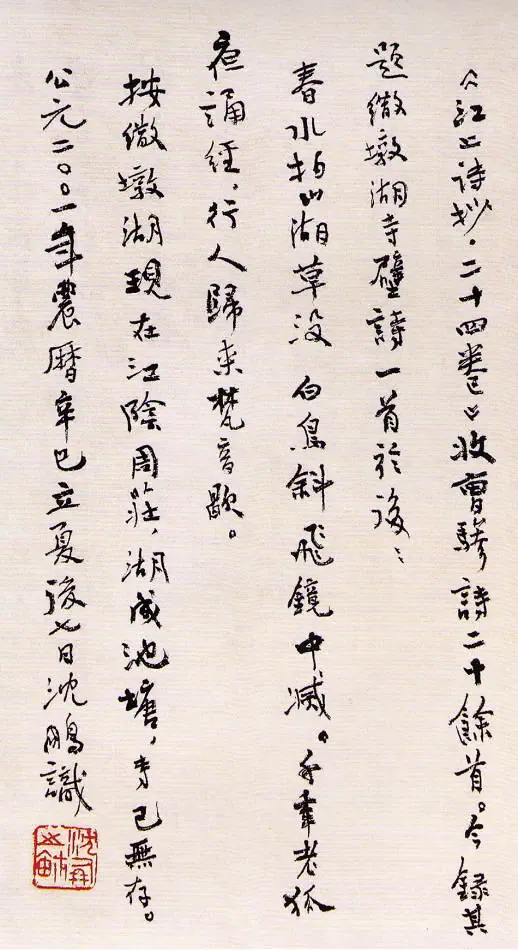 《江上诗抄·二十四卷》收曹驂詩二十餘首。今録其
题微墩湖寺壁詩一首於後：
春水拍山湖草没 白鳥斜飛鏡中滅。千年老狐
夜誦经，行人歸来梵音歇。
按微墩湖現在江陰周莊，湖成池塘，寺已無存。
公元二〇〇一年農曆辛巳立夏後七日沈鵬識